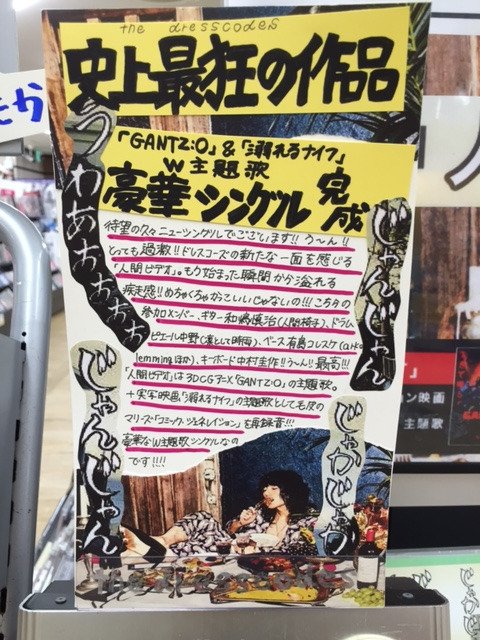 the dresscodes
史上最狂の作品
「GANTZ:O」&「溺れるナイフ」
W主題歌
豪華シングル完成
うわあぉぉぉぉ
じゃんじゃん
待望の久々ニューシングルでございます!!う〜ん!!
とっても過激!!ドレスコーズの新たな一面を感じる
「人間ビデオ」。もう始まった瞬間から溢れる
疾走感!!めちゃくちゃかっこいいじゃないの!!!こちらの
参加メンバー、ギター和嶋慎治(人間椅子)、ドラム
ピエール中野(凛として時雨)、ベース有島コレスケ(told
lemmingほか)、キーボード中村圭作!!う〜ん!!最高!!!
「人間ビデオ」は3DCGアニメ「GANTZ:O」の主題歌。
+実写映画「溺れるナイフ」の主題歌としても毛皮の
マリーズ「コミック・ジェネレイション」を再録音!!!
豪華なW主題歌シングルなの
です!!!!
じゃんじゃん
じゃかじゃか
the dresscodes
ン映画
主題歌